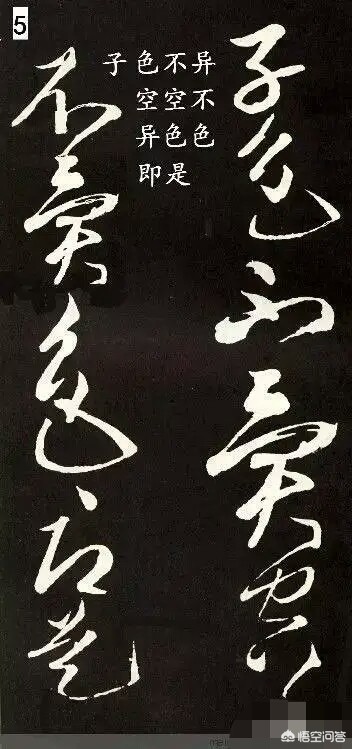 5
子色不异
空空不
异色色
即是
子色不異空
不異色即是
悟空问答